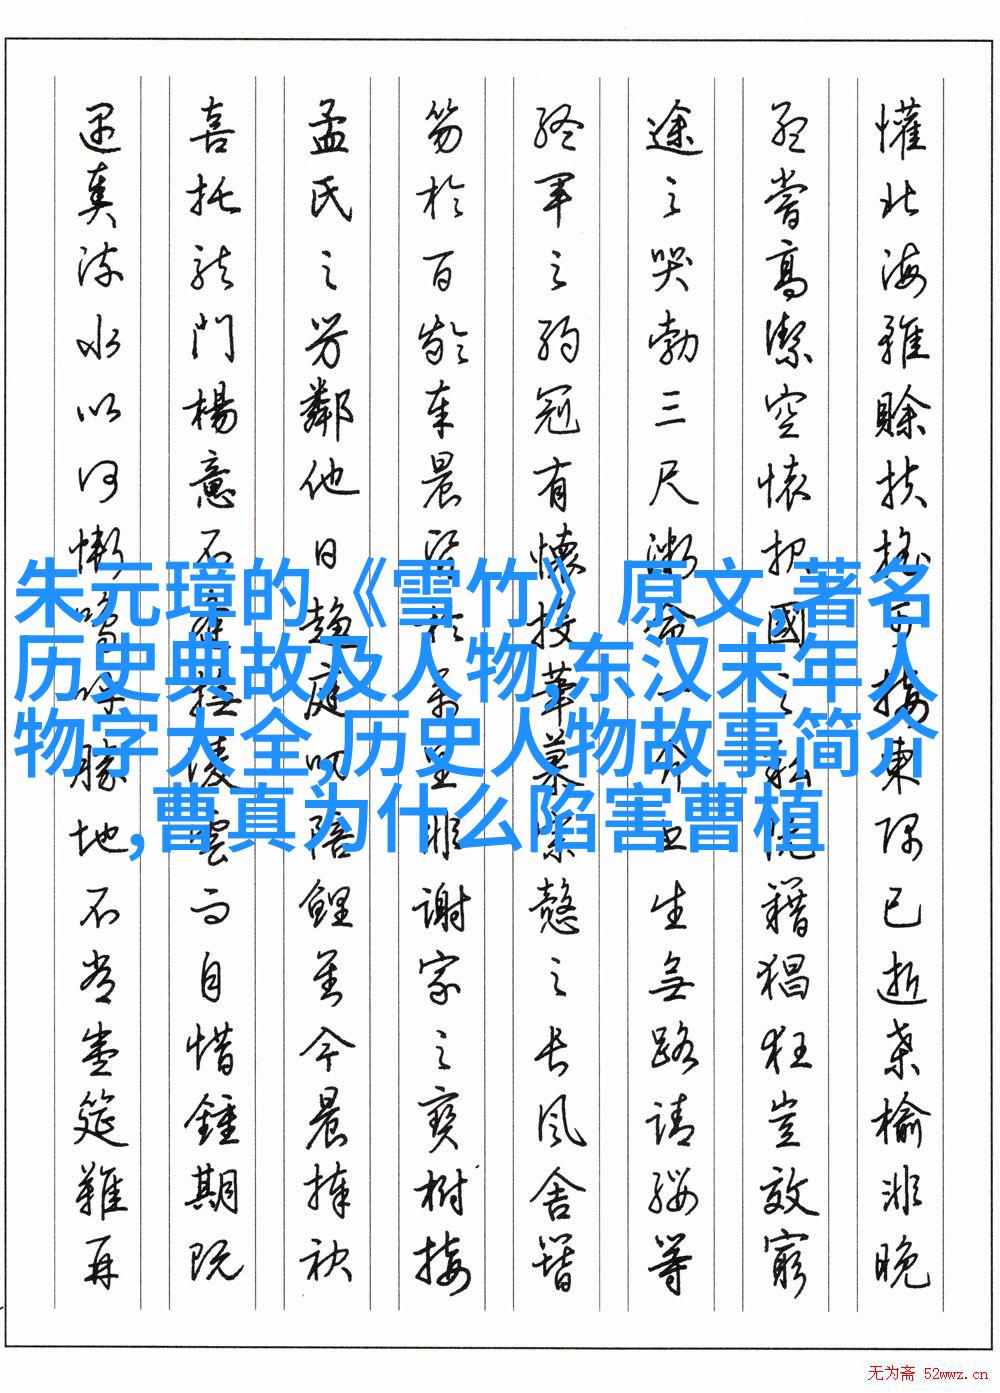 朱元璋的《雪竹》原文,著名
历史典故及人物,东汉末年人
物字大全,历史人物故事简介
,曹真为什么陷害曹植
懽北海雖賒扶搖可接東隅已逝桑榆非晚
孟嘗高潔空懷报國之私阮籍猖狂豈效窮
途之哭勃三尺微命一介書生無路請纓等
終軍之弱冠有懷投筆慕宗愨之長風舍簪
笏於百齡奉晨昏於萬里非謝家之寶樹接
孟氏之芳鄰他日趨庭叨陪鯉對今晨捧袂
喜托龍門楊意不逢撫凌雲而自惜鍾期既
遇奏流水以何慚嗚呼勝地不常盛筵難再
无为斋 52wwz.cn